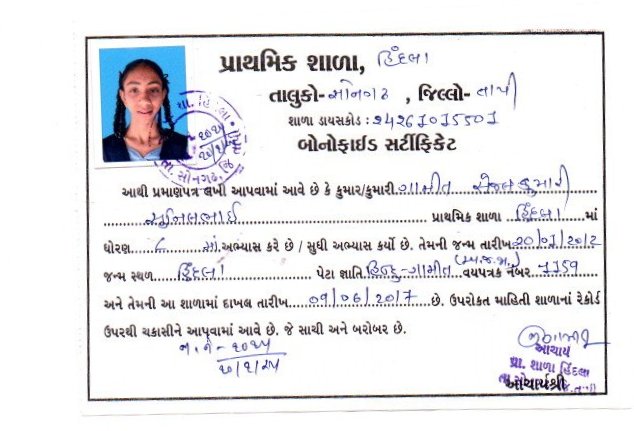 પ્રાથમિક શાળા, હિંદલા
તાલુકો-સોનગઢ, જિલ્લો-તાપી
શાળા ડાયસકોડ : 24267015501
બોનોફાઈડ સર્ટીફિકેટ
આથી પ્રમાણપત્ર લખી આપવામાં આવે છે કે કુમાર/કુમારી ગામીત સેજલકુમારી
સુનિલભાઈ પ્રાથમિક શાળા હિંદલા માં
ધોરણ ૮ માં અભ્યાસ કરે છે / સુધી અભ્યાસ કર્યો છે. તેમની જન્મ તારીખ 20/01/2012
જન્મ સ્થળ હિંદલા પેટા જ્ઞાતિ હિન્દુ-ગામીત (અ.જ.જા.) વયપત્રક નંબર 1159
અને તેમની આ શાળામાં દાખલ તારીખ 09/06/2017 છે. ઉપરોકત માહિતી શાળાનાં રેકોર્ડ
ઉપરથી ચકાસીને આપવામાં આવે છે. જે સાચી અને બરોબર છે.
જા.નં- ૨૦૨૫
આચાર્ય
પ્રા. શાળા હિંદલા
આચાર્યશ્રી